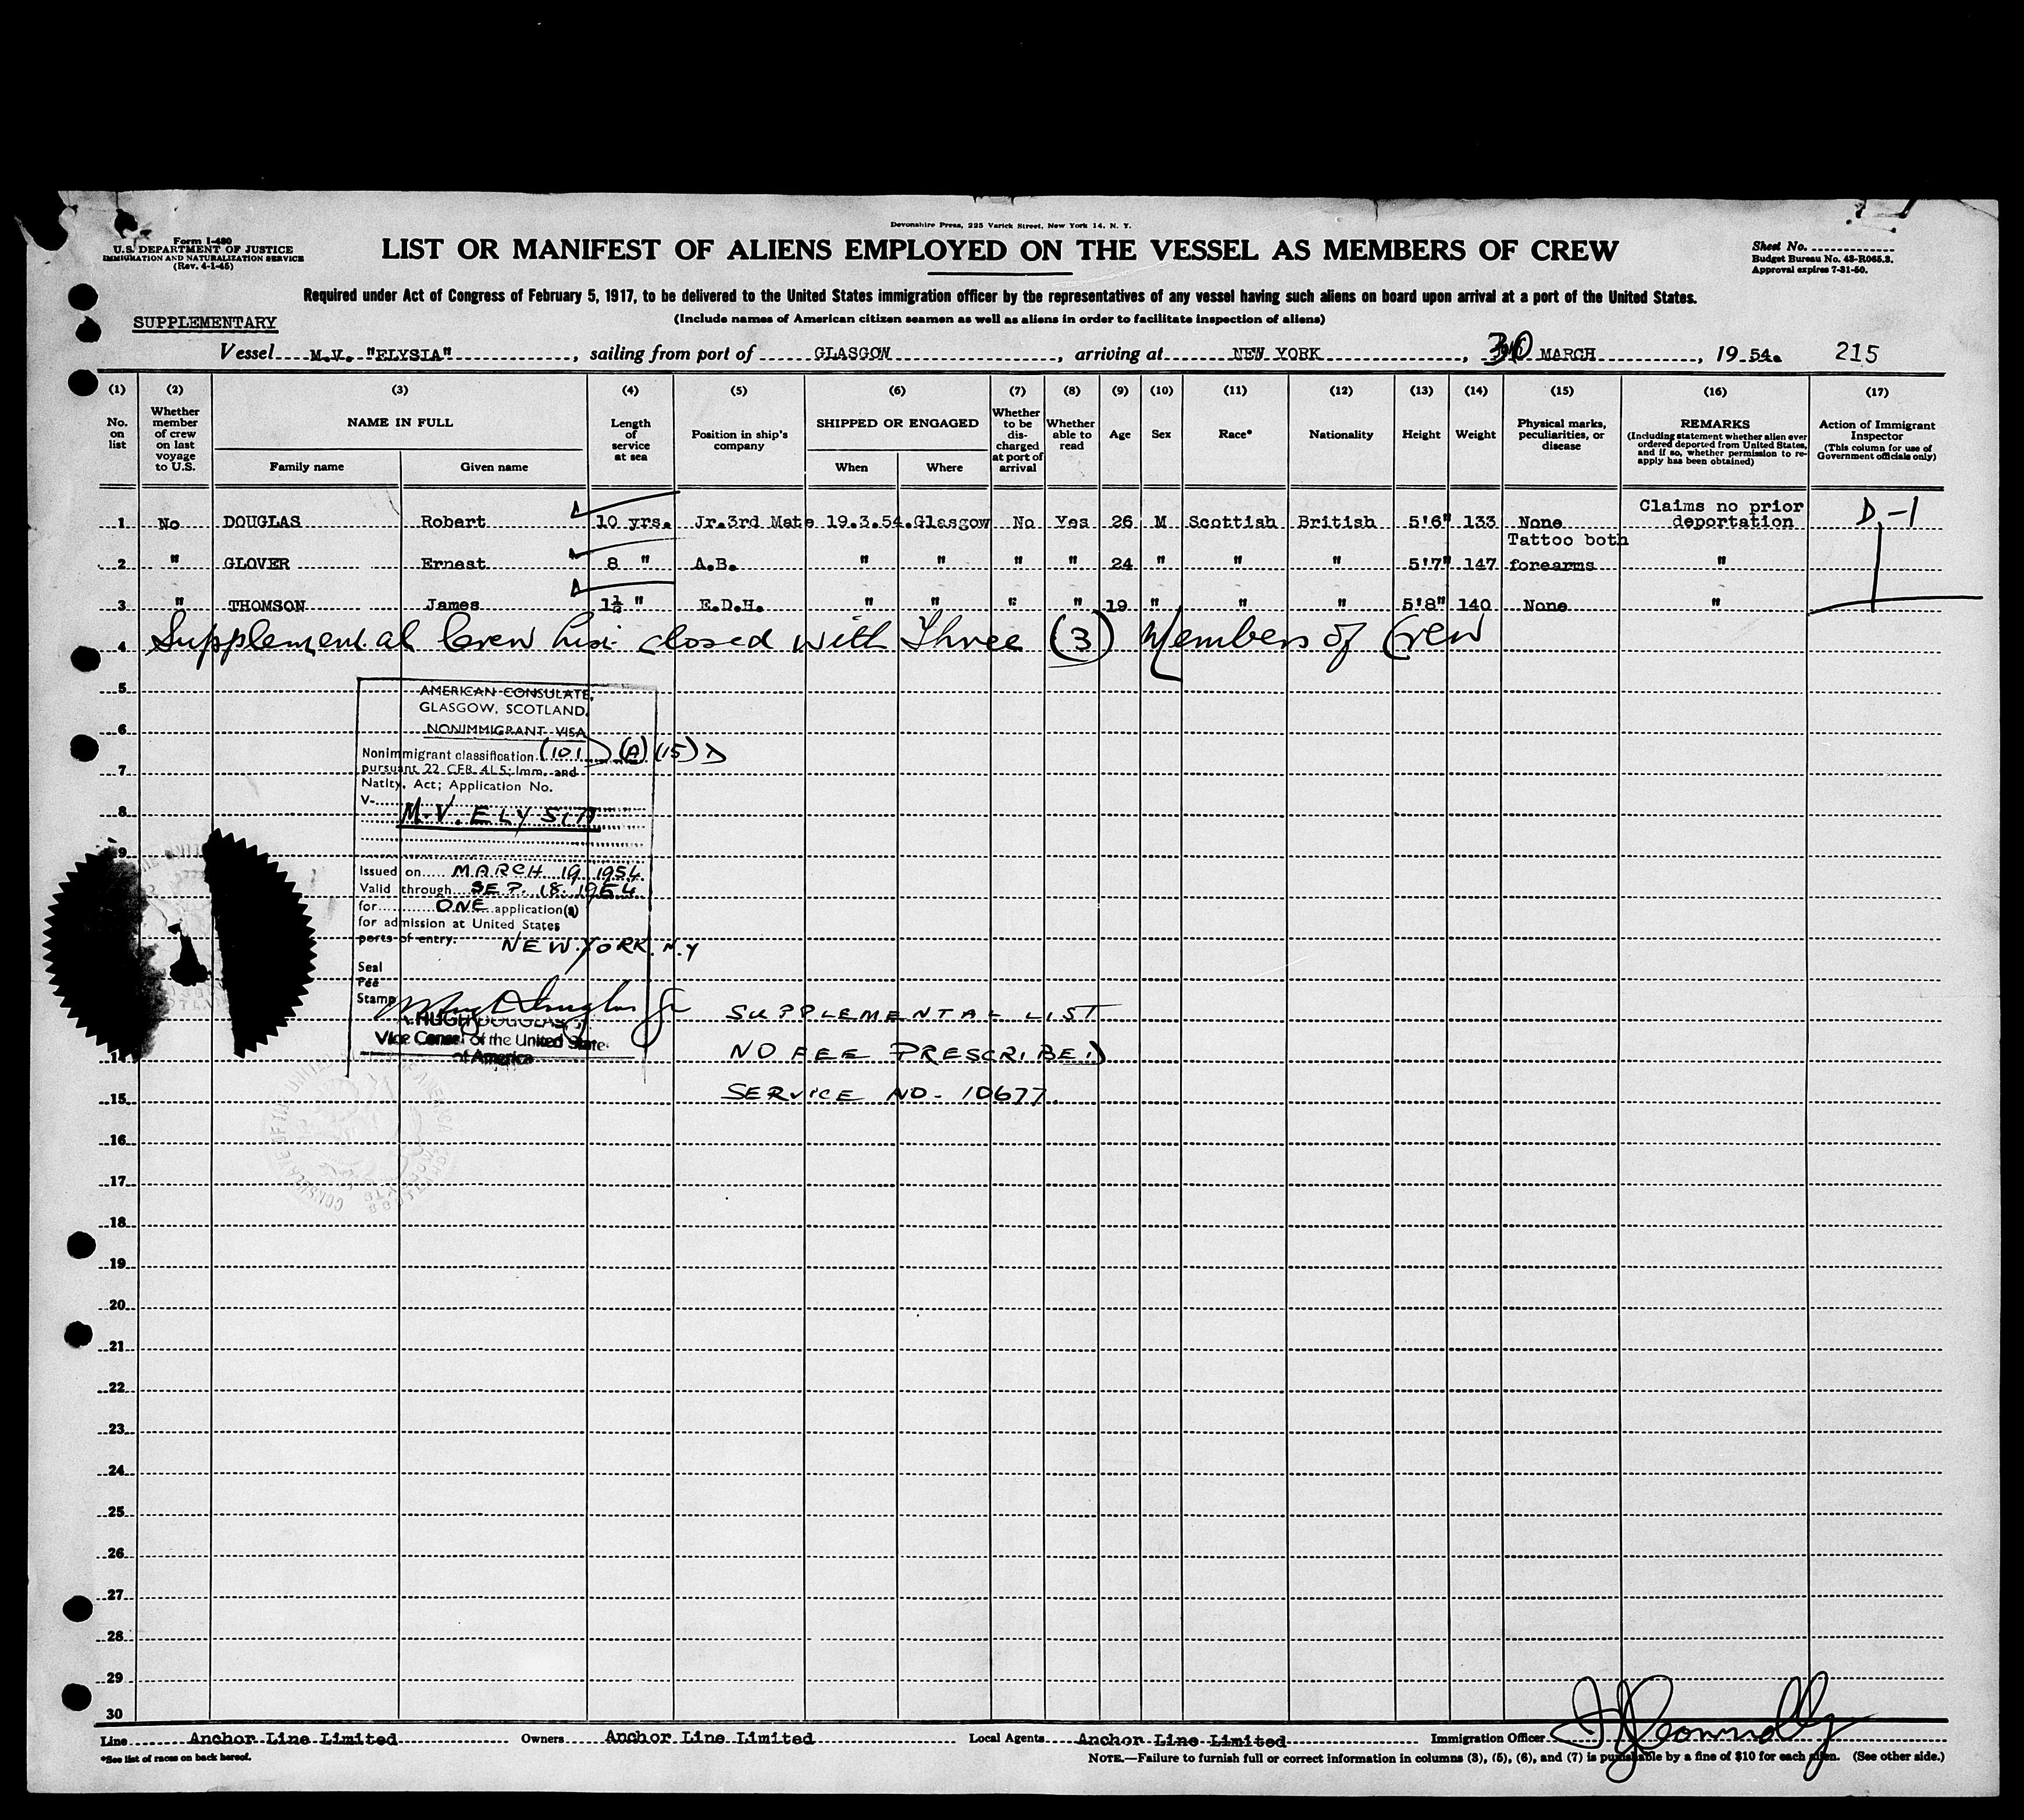 Devonshire Press, 225 Varick Street, New York 14, N. Y.
Form I-480
U.S. DEPARTMENT OF JUSTICE
IMMIGRATION AND NATURALIZATION SERVICE
(Rev. 4-1-45)
LIST OR MANIFEST OF ALIENS EMPLOYED ON THE VESSEL AS MEMBERS OF CREW
Sheet No.
Budget Bureau No. 43-R065.3.
Approval expires 7-31-50.
Required under Act of Congress of February 5, 1917, to be delivered to the United States immigration officer by the representatives of any vessel having such aliens on board upon arrival at a port of the United States.
(Include names of American citizen seamen as well as aliens in order to facilitate inspection of aliens)
SUPPLEMENTARY
Vessel M.V. "ELYSIA", sailing from port of GLASGOW, arriving at NEW YORK, 30 MARCH, 19 54. 215
(1) (2) (3) (4) (5) (6) (7) (8) (9) (10) (11) (12) (13) (14) (15) (16) (17)
No. on list
Whether member of crew on last voyage to U.S.
NAME IN FULL
Family name Given name
Length of service at sea
Position in ship's company
SHIPPED OR ENGAGED
When Where
Whether to be discharged at port of arrival
Whether able to read
Age
Sex
Race*
Nationality
Height
Weight
Physical marks, peculiarities, or disease
REMARKS
(Including statement whether alien ever ordered deported from United States, and if so, whether permission to re-apply has been obtained)
Action of Immigrant Inspector
(This column for use of Government officials only)
1 No DOUGLAS Robert 10 yrs. Jr.3rd Mate 19.3.54. Glasgow No Yes 26 M Scottish British 5'6" 133 None Claims no prior deportation D-1
2 " GLOVER Ernest 8 " A.B. " " " " 24 " " " 5'7" 147 Tattoo both forearms "
3 " THOMSON James 1½ " E.D.H. " " " " 19 " " " 5'8" 140 None "
4 Supplemental Crew List closed with Three (3) Members of Crew
5
6
7
8
9
14
15
16
17
18
19
20
21
22
23
24
25
26
27
28
29
30
AMERICAN CONSULATE,
GLASGOW, SCOTLAND.
NONIMMIGRANT VISA
Nonimmigrant classification (101) (A) (15) D
pursuant 22 CFR 41.5; Imm. and
Natity. Act; Application No.
V-
M.V. ELYSIA
Issued on MARCH 19 1954.
Valid through SEP. 18. 1954
for ONE application(s)
for admission at United States
ports of entry: NEW YORK. N.Y
Seal
Fee
Stamp
A. HUGH DOUGLAS, Jr.
Vice Consul of the United States
of America
SUPPLEMENTAL LIST
NO FEE PRESCRIBED
SERVICE NO. 10677.
Line Anchor Line Limited Owners Anchor Line Limited Local Agents Anchor Line Limited Immigration Officer
*See list of races on back hereof.
NOTE.—Failure to furnish full or correct information in columns (3), (5), (6), and (7) is punishable by a fine of $10 for each alien. (See other side.)